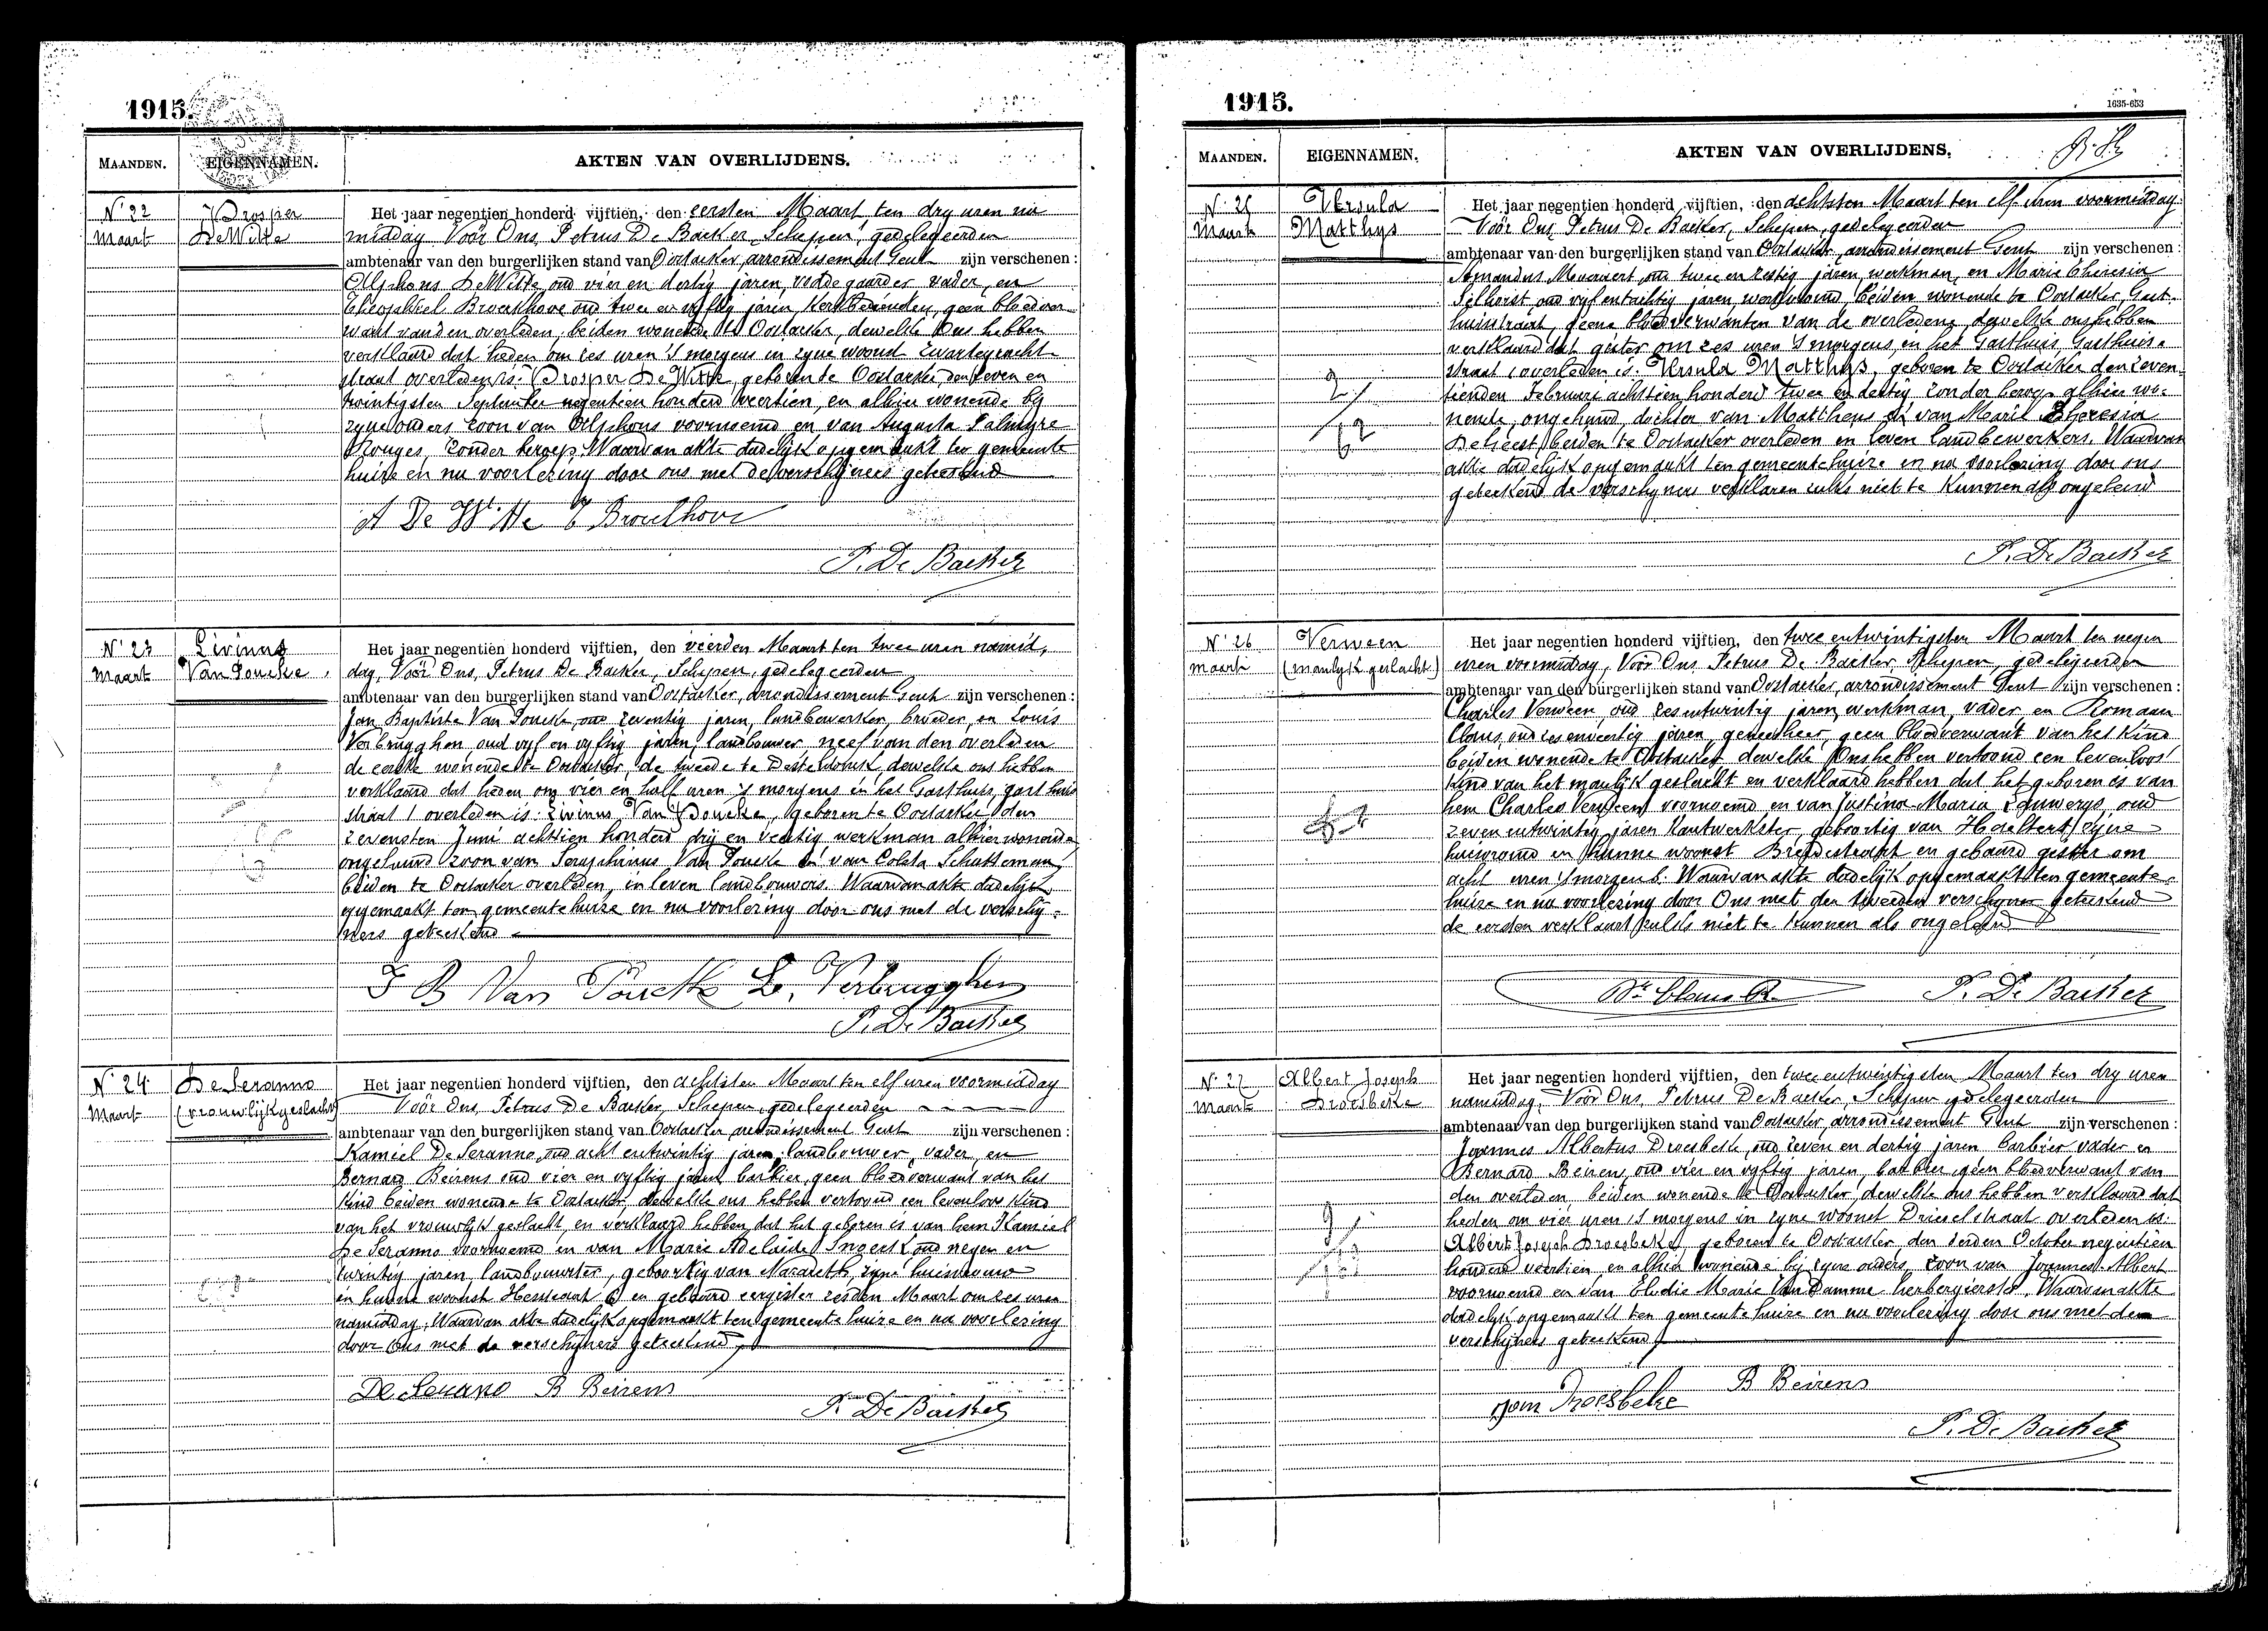 1915.
MAANDEN.
EIGENNAMEN.
AKTEN VAN OVERLIJDENS.
N° 22
Maart
Prosper
De Witte
Het jaar negentien honderd vijftien, den eersten Maart ten dry uren na
middag Vóór Ons, Petrus De Backer, Schepen, gedelegeerden
ambtenaar van den burgerlijken stand van Oostacker, arrondissement Gent zijn verschenen :
Alphons De Witte oud vier en dertig jaren, vader, en
Theophiel Broeckhove oud twee en vyftig jaren, kerkbediende, geen bloedver-
want van den overleden, beiden wonende te Oostacker, dewelke ons hebben
verklaard dat heden om zes uren 's morgens in zyne woonst
straat overleden is: Prosper De Witte, geboren te Oostacker den zeven en
twintigsten September negentien honderd veertien, en alhier wonende bij
zyne ouders zoon van Alphons voornoemd en van Augusta Palmyre
Rouges, zonder beroep. Waarvan akte dadelijk opgemaakt ten gemeente
huize en na voorlezing door ons met de verschijners geteekend
A De Witte T Broeckhove
P. De Backer
N° 23
Maart
Livinus
Van Poucke
Het jaar negentien honderd vijftien, den vierden Maart ten twee uren namid,
dag, Vóór Ons, Petrus De Backer, Schepen, gedelegeerden
ambtenaar van den burgerlijken stand van Oostacker, arrondissement Gent zijn verschenen :
Jan Baptiste Van Poucke, oud zeventig jaren, landbewerker, broeder, en Louis
Verbrugghen oud vyf en vyftig jaren, landbouwer, neef van den overleden
de eerste wonende te Oostacker, de tweede te Destelbonck, dewelke ons hebben
verklaard dat heden om vier en half uren 's morgens in het Gasthuis, gasthuis
straat 1 overleden is: Livinus Van Poucke, geboren te Oostacker den
zevensten Juni achttien honderd drij en veertig, werkman alhier wonende
ongehuwd zoon van Seraphinus Van Poucke en van Coleta Schatteman
beiden te Oostacker overleden, in leven landbouwers. Waarvan akte dadelijk
opgemaakt ten gemeentehuize en na voorlezing door ons met de verschij-
ners geteekend
J B Van Poucke L. Verbrugghen
P. De Backer
N° 24
Maart
De Seranno
(vrouwlijk geslacht)
Het jaar negentien honderd vijftien, den achtsten Maart ten elf uren voormiddag
Vóór Ons, Petrus De Backer, Schepen, gedelegeerden
ambtenaar van den burgerlijken stand van Oostacker arrondissement Gent zijn verschenen :
Kamiel De Seranno, oud acht entwintig jaren, landbouwer, vader, en
Bernard Beirens oud vier en vyftig jaren barbier, geen bloedverwant van het
kind beiden wonende te Oostacker, dewelke ons hebben vertoond een levenloos kind
van het vrouwlijk geslacht, en verklaard hebben dat het geboren is van hem Kamiel
De Seranno voornoemd en van Marie Adelaide Snoeck oud negen en
twintig jaren, landbouwster, geboortig van Nazareth, zyne huisvrouw
en hunne woonst en gebaard eergister zesden Maart om zes uren
namiddag. Waarvan akte dadelijk opgemaakt ten gemeentehuize en na voorlezing
door ons met de verschijners geteekend
De Seranno B Beirens
P. De Backer
1915.
1635-653
MAANDEN.
EIGENNAMEN.
AKTEN VAN OVERLIJDENS.
N° 25
Maart
Ursula
Matthys
Het jaar negentien honderd vijftien, den achtsten Maart ten elf uren voormiddag
Vóór Ons, Petrus De Backer, Schepen, gedelegeerden
ambtenaar van den burgerlijken stand van Oostacker, arrondissement Gent zijn verschenen :
Amandus oud twee en zestig jaren, werkman, en Marie Theresia
oud vyf entachtig jaren, werkvrouw, beiden wonende te Oostacker, Gast-
huisstraat, geene bloedverwanten van de overledene, dewelke ons hebben
verklaard dat gister om zes uren 's morgens, in het Gasthuis, Gasthuis-
straat 1 overleden is: Ursula Matthys, geboren te Oostacker den zeven-
tienden Februari achttien honderd twee en dertig zonder beroep alhier wo-
nende, ongehuwd, dochter van Mattheus en van Marie Theresia
De Geest, beiden te Oostacker overleden en leven landbewerkers. Waarvan
akte dadelijk opgemaakt ten gemeentehuize en na voorlezing door ons
geteekend de verschyners verklaren zulks niet te kunnen als ongeleerd
P. De Backer
N° 26
maart
Verween
(manlijk geslacht)
Het jaar negentien honderd vijftien, den twee entwintigsten Maart ten negen
uren voormiddag, Vóór Ons, Petrus De Backer, Schepen, gedelegeerden
ambtenaar van den burgerlijken stand van Oostacker, arrondissement Gent zijn verschenen :
Charles Verween, oud zes entwintig jaren, werkman, vader en Romaan
Claus, oud zes enveertig jaren, geneesheer, geen bloedverwant van het kind
beiden wonende te Oostacker dewelke Ons hebben vertoond een levenloos
kind van het manlijk geslacht en verklaard hebben dat het geboren is van
hem Charles Verween voornoemd en van Justina Maria Lauwerys, oud
zeven entwintig jaren kantwerkster, geboortig van Haeltert, zyne
huisvrouw en hunne woonst en gebaard gister om
acht uren 's morgens. Waarvan akte dadelijk opgemaakt ten gemeente-
huize en na voorlezing door Ons met den tweeden verschyner geteekend
de eersten verklaart zulks niet te kunnen als ongeleerd
Dr. Claus R.
P. De Backer
N° 27
Maart
Albert Joseph
Droesbeke
Het jaar negentien honderd vijftien, den twee entwintigsten Maart ten dry uren
namiddag, Vóór Ons, Petrus De Backer, Schepen gedelegeerden
ambtenaar van den burgerlijken stand van Oostacker, arrondissement Gent zijn verschenen :
Joannes Albertus Droesbeke, oud zeven en dertig jaren barbier vader en
Bernard Beirens, oud vier en vyftig jaren, barbier, geen bloedverwant van
den overleden beiden wonende te Oostacker, dewelke ons hebben verklaard dat
heden om vier uren 's morgens in zyne woonst Drieselstraat overleden is:
Albert Joseph Droesbeke, geboren te Oostacker, den October negentien
honderd veertien, en alhier wonende bij zyne ouders, zoon van Joannes Albert
voornoemd en van Elodie Marie Van Damme herbergierster. Waarvan akte
dadelijk opgemaakt ten gemeentehuize en na voorlezing door ons met de
verschijners geteekend
Joan Droesbeke
B Beirens
P. De Backer